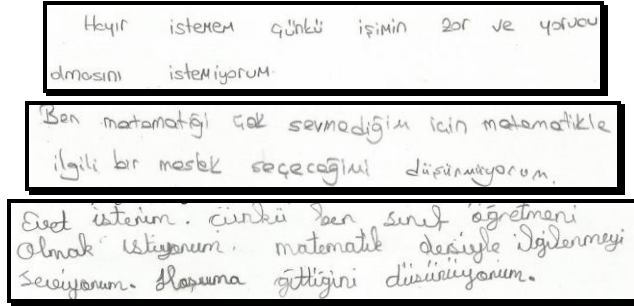 Hayır istemem çünkü işimin zor ve yorucu
olmasını istemiyorum.
Ben matamatiği çok sevmediğim için matematikle
ilgili bir meslek seçeceğimi düşünmüyorum.
Evet isterim. çünkü ben sınıf öğretmeni
olmak istiyorum. matematik dersiyle ilgilenmeyi
seviyorum. Hoşuma gittiğini düşünüyorum.